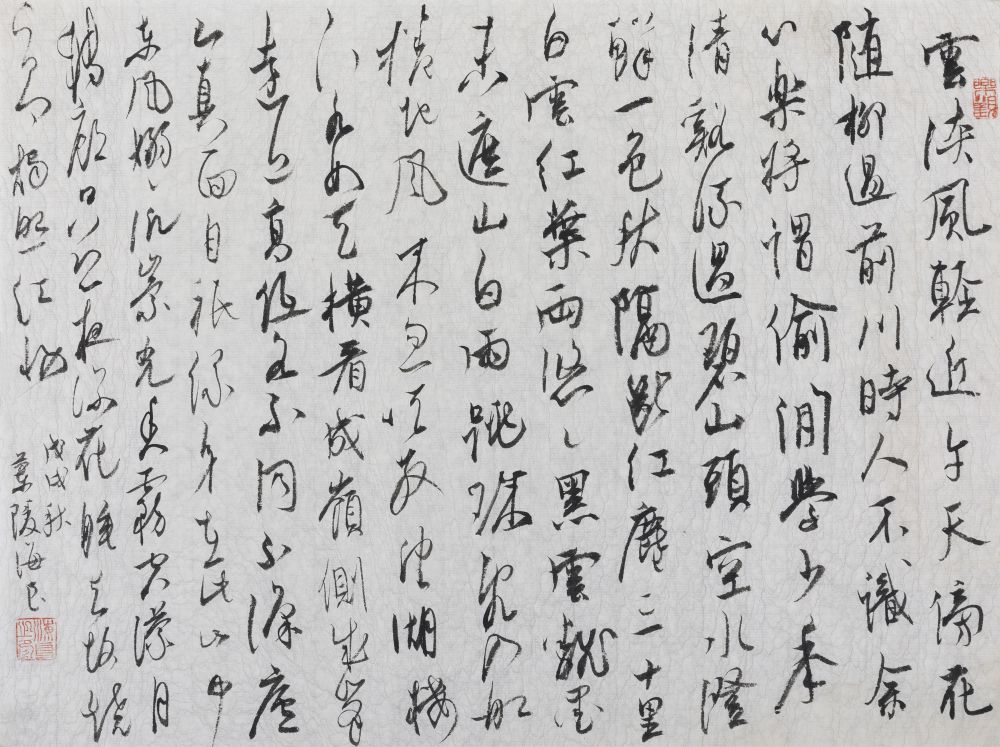 雲淡風輕近午天傍花
随柳過前川時人不識余
心樂將謂偷閒學少年
清谿流過碧山頭空水澄
鮮一色秋隔斷紅塵三十里
白雲紅葉兩悠々黑雲翻墨
未遮山白雨跳珠亂入船
捲地風来忽吹散望湖樓
下水如天横看成嶺側成峯
遠近高低各不同不識廬
山真面目祇緣身在此山中
東風嫋々泛崇光香霧空濛月
轉廊只恐夜深花睡去故燒
高燭照紅妝
戊戌秋
陵海